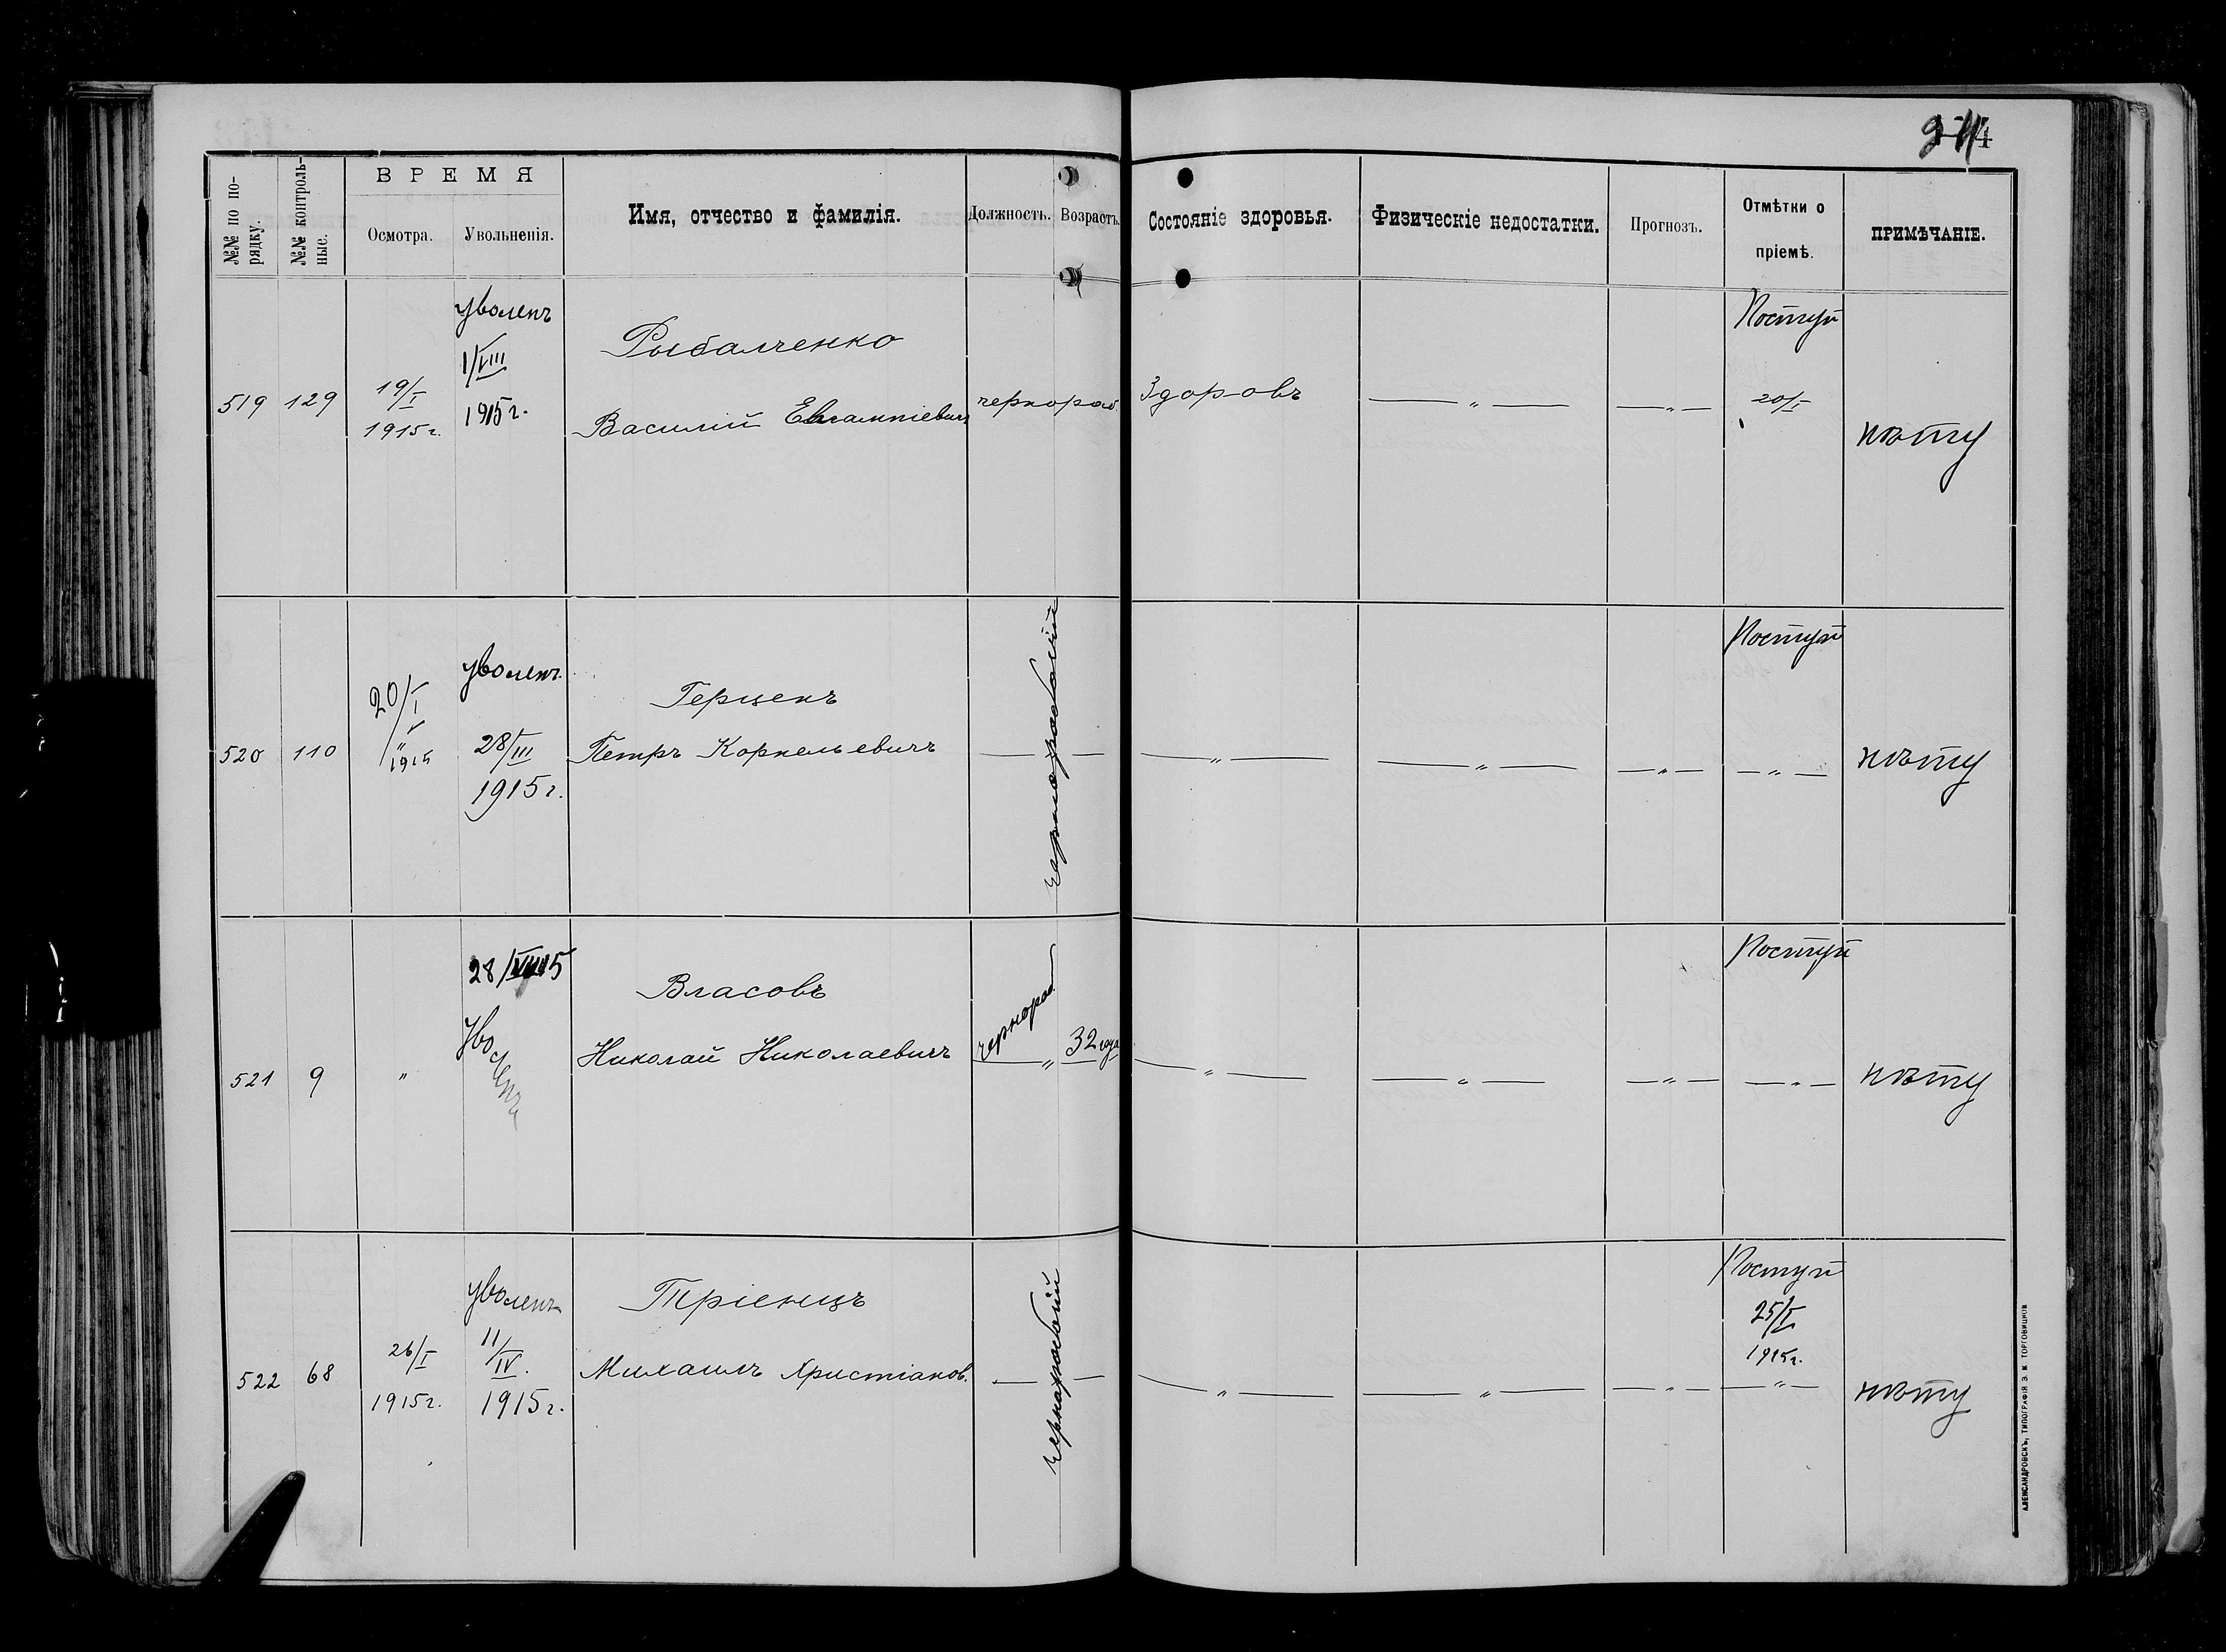 ВРЕМЯ
№№ по по-
рядку.
№№ контроль-
ные.
Осмотра.
Увольненія.
Имя, отчество и фамилія.
Должность.
Возрастъ.
Состояніе здоровья.
Физическіе недостатки.
Прогнозъ.
Отмѣтки о
пріемѣ.
ПРИМѢЧАНІЕ.
519
129
19/I
1915г.
уволенъ
1/VIII
1915г.
Рыбалченко
Василій Евлампіевичъ
чернораб.
Здоровъ
— „ —
— „ —
Поступ
20/I
нѣту
520
110
20/I
„
1915
уволенъ
28/III
1915г.
Герценъ
Петръ Корнельевичъ
чернорабочій
— „ —
— „ —
— „ —
Поступ
— „ —
нѣту
521
9
„
28/VIII 15
Уволенъ
Власовъ
Николай Николаевичъ
чернораб.
— „ —
32 года
— „ —
— „ —
— „ —
Поступ
— „ —
нѣту
522
68
26/I
1915г.
уволенъ
11/IV.
1915г.
Тріенцъ
Михаилъ Христіанов.
чернорабочій
— „ —
— „ —
— „ —
Поступ
25/I
1915г.
— „ —
нѣту
АЛЕКСАНДРОВСКЪ, ТИПОГРАФІЯ Э. М. ТОРГОВИЦКОВ